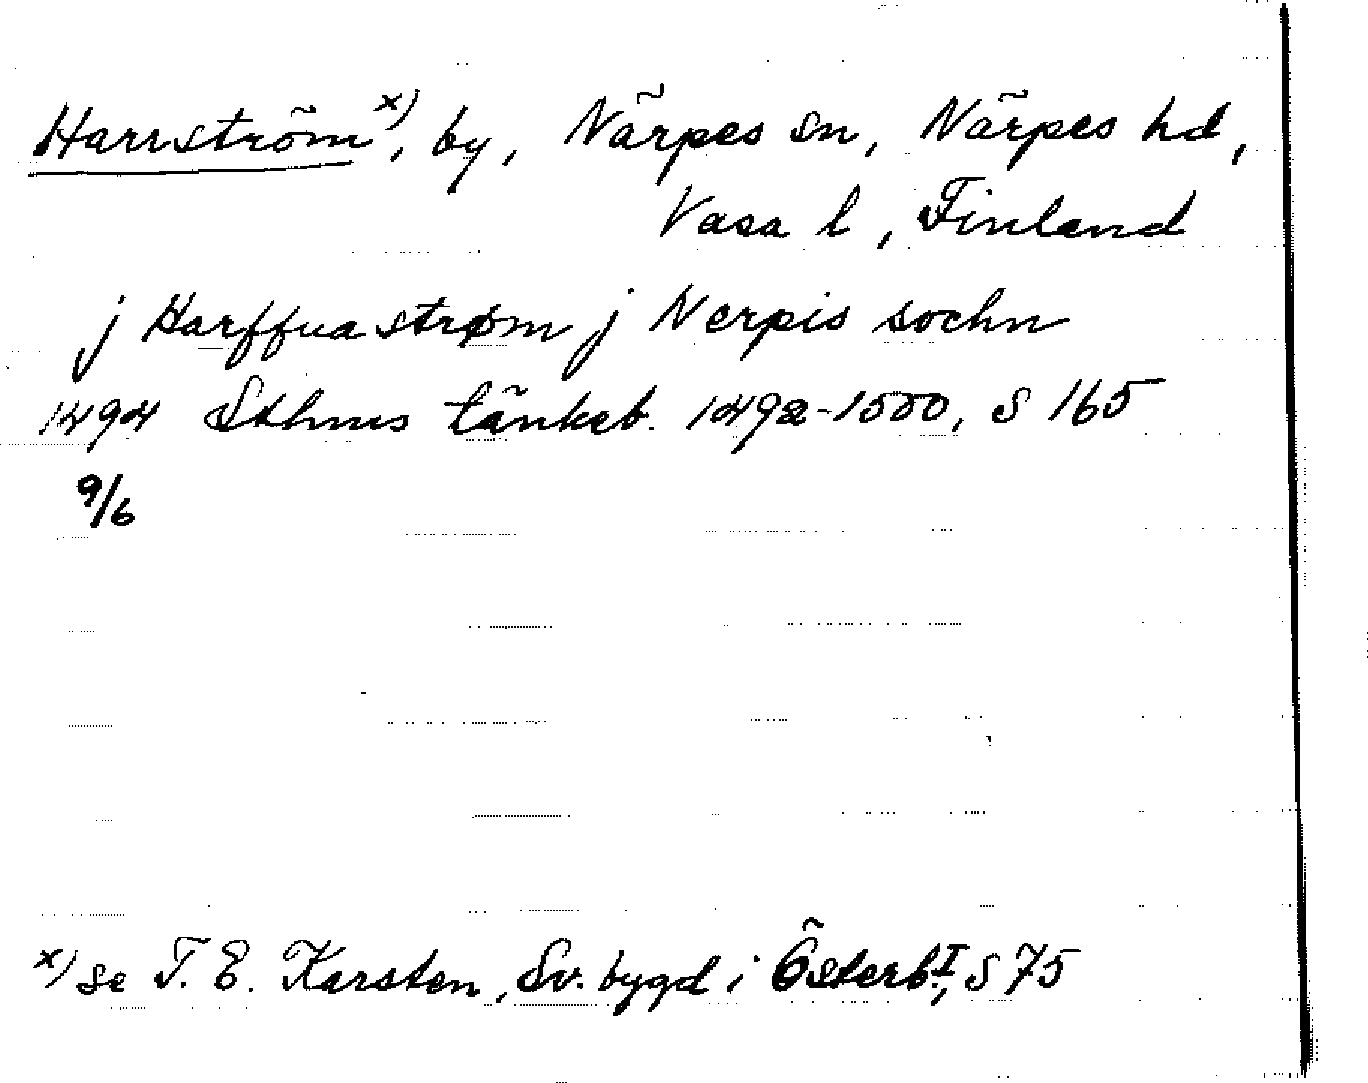 Harrström x), by, Närpes sn, Närpes hd,
Vasa l, Finland
j Harffuastrøm j Nerpis sochn
1494 Sthms tänkeb. 1492-1500, s 165
9/6
x) se T. E. Karsten, Sv. bygd i Österb. I, s 75